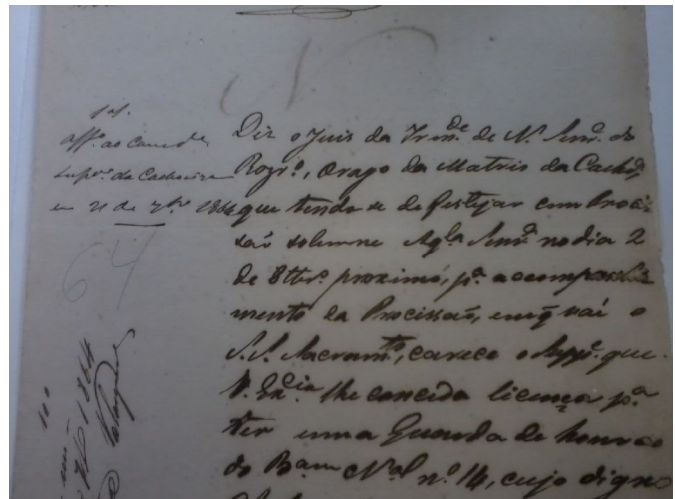 Off.º ao Com.de
Sup.or da Cachoeira
em 21 de 7br.º 1864
64
Diz o Juis da Irm.de de N. Snr.ª do
Rozr.º, Orago da Matris da Cachr.ª,
que tendo se de festejar com Procis-
saõ solemne Aq.la Snr.ª no dia 2
de 8tbr.º proximo, p.ª acompanha-
mento da Procissaõ, em q̃ vai o
S.S. Sacram.to, carece o Supp.e que
V. Ex.cia lhe conceda licença p.ª
ter uma Guarda de honra
do Bam N.al n.º 14, cujo digno